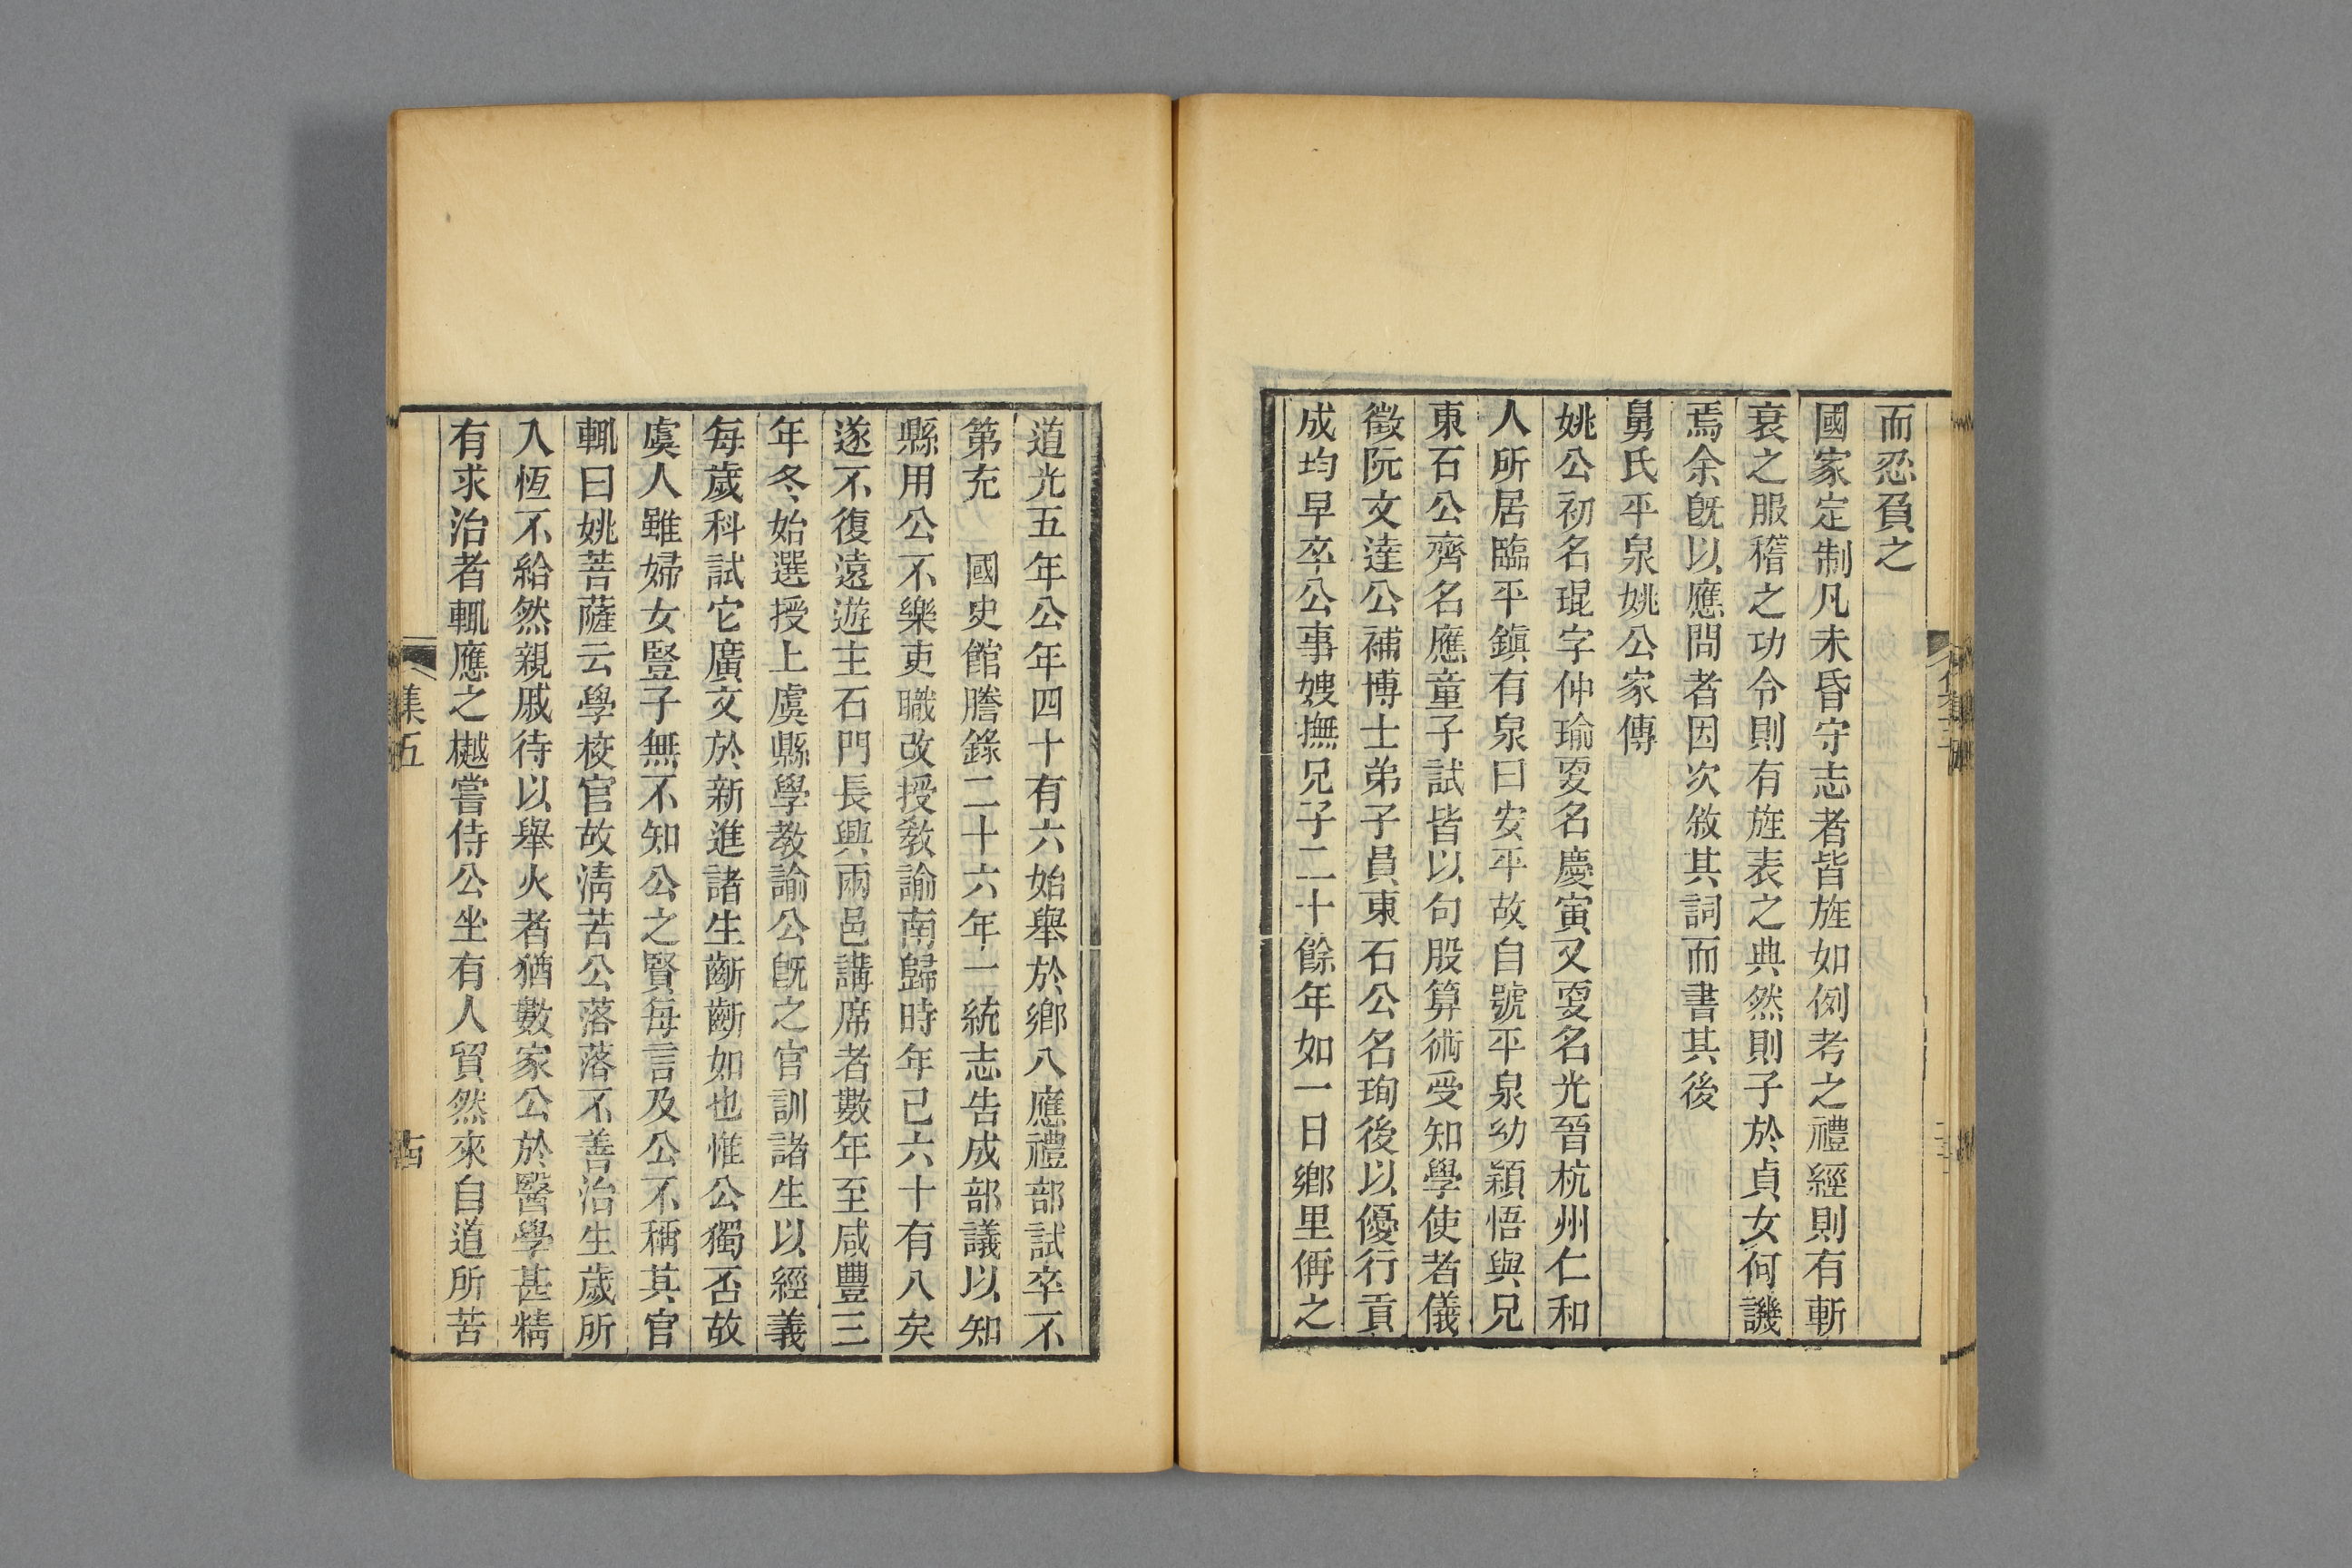 而忍負之
國家定制凡未昏守志者皆旌如例考之禮經則有斬
衰之服稽之功令則有旌表之典然則子於貞女何譏
焉余既以應問者因次敘其詞而書其後
舅氏平泉姚公家傳
姚公初名琨字仲瑜叓名慶寅又叓名光晉杭州仁和
人所居臨平鎮有泉曰安平故自號平泉幼穎悟與兄
東石公齊名應童子試皆以句股算術受知學使者儀
徵阮文達公補博士弟子員東石公名珣後以優行貢
成均早卒公事嫂撫兄子二十餘年如一日鄉里偁之
道光五年公年四十有六始舉於鄉八應禮部試卒不
第充　國史館謄錄二十六年一統志告成部議以知
縣用公不樂吏職改授教諭南歸時年已六十有八矣
遂不復遠遊主石門長興兩邑講席者數年至咸豐三
年冬始選授上虞縣學教諭公既之官訓諸生以經義
每歲科試它廣文於新進諸生齗齗如也惟公獨否故
虞人雖婦女豎子無不知公之賢每言及公不稱其官
輒曰姚菩薩云學校官故清苦公落落不善治生歲所
入恆不給然親戚待以舉火者猶數家公於醫學甚精
有求治者輒應之樾嘗侍公坐有人貿然來自道所苦
集五